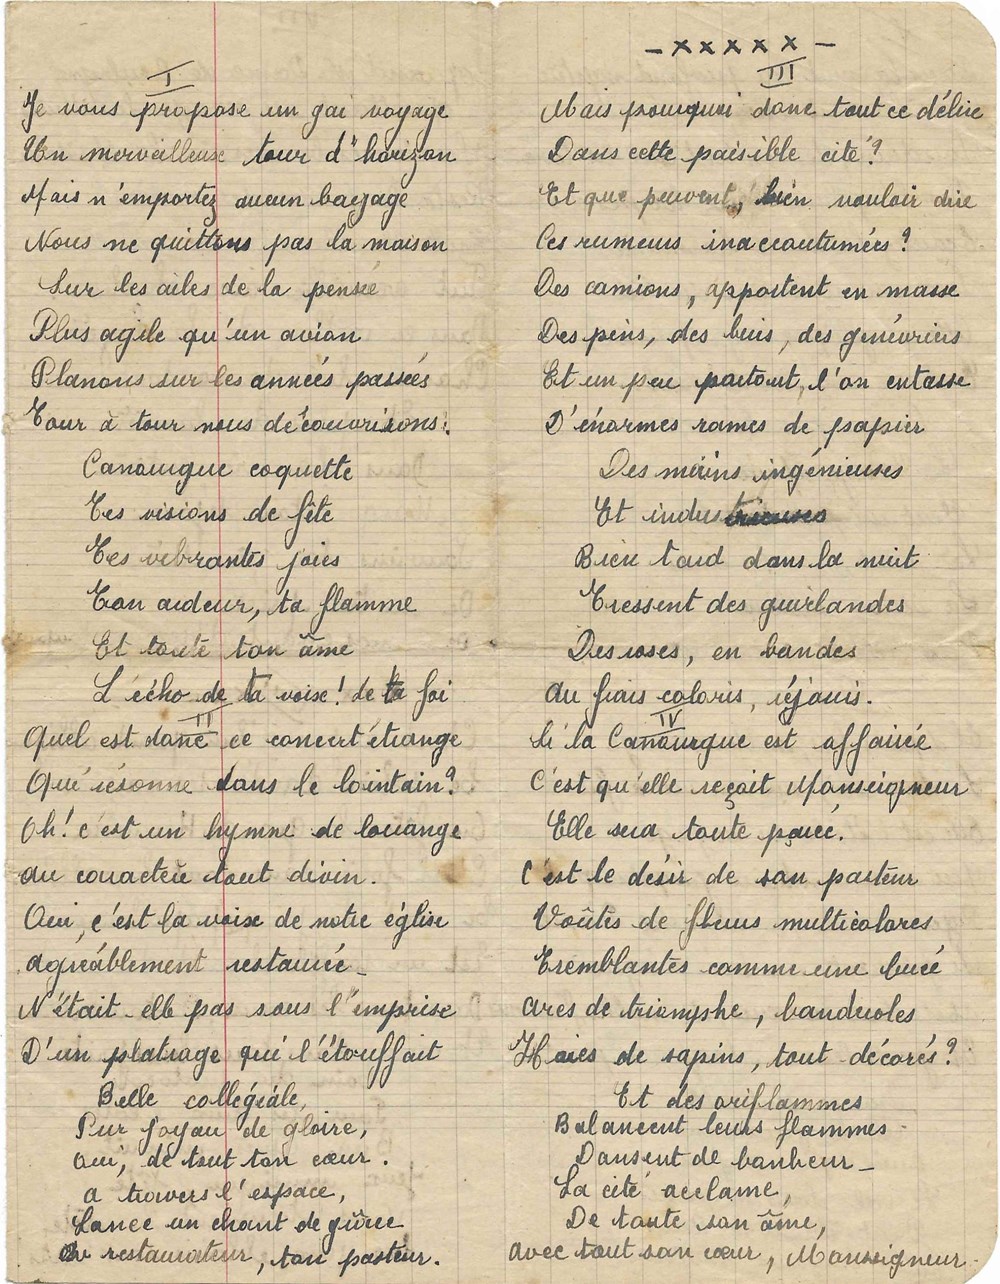 I
Je vous propose un gai voyage
Un merveilleux tour d'horizon
Mais n'emportez aucun bagage
Nous ne quittons pas la maison
Sur les ailes de la pensée
Plus agile qu'un avion
Planons sur les années passées
Tour à tour nous découvrirons :
Canourgue coquette
Tes visions de fête
Tes vibrantes joies
Ton ardeur, ta flamme
Et toute ton âme
L'écho de ta voise ! de ta foi
II
Quel est donc ce concert étrange
Qui résonne dans le lointain ?
Oh ! c'est un hymne de louange
au caractère tout divin.
Oui, c'est la voix de notre église
agréablement restaurée -
N'était-elle pas sous l'emprise
D'un platrage qui l'étouffait
Belle collégiale,
Pur joyau de gloire,
Oui, de tout ton cœur.
a travers l'espace,
Lance un chant de grâce
restaurateur, ton pasteur.
- x x x x x -
III
Mais pourquoi donc tout ce délire
Dans cette paisible cité ?
Et que peuvent, bien vouloir dire
Ces rumeurs inaccoutumées ?
Des camions, apportent en masse
Des pins, des buis, des genévriers
Et un peu partout, l'on entasse
D'énormes rames de papier
Des mains ingénieuses
Et industrieuses
Bien tard dans la nuit
Tressent des guirlandes
Des roses, en bandes
au frais coloris, réjouis.
IV
Si la Canourgue est affairée
C'est qu'elle reçoit Monseigneur
Elle sera toute parée.
C'est le désir de son pasteur
Voûtes de fleurs multicolores
Tremblantes comme une buée
arcs de triomphe, banderoles
Haies de sapins, tout décorés ?
Et des oriflammes
Balancent leurs flammes -
Dansent de bonheur -
La cité acclame,
De toute son âme,
avec tout son cœur, Monseigneur -